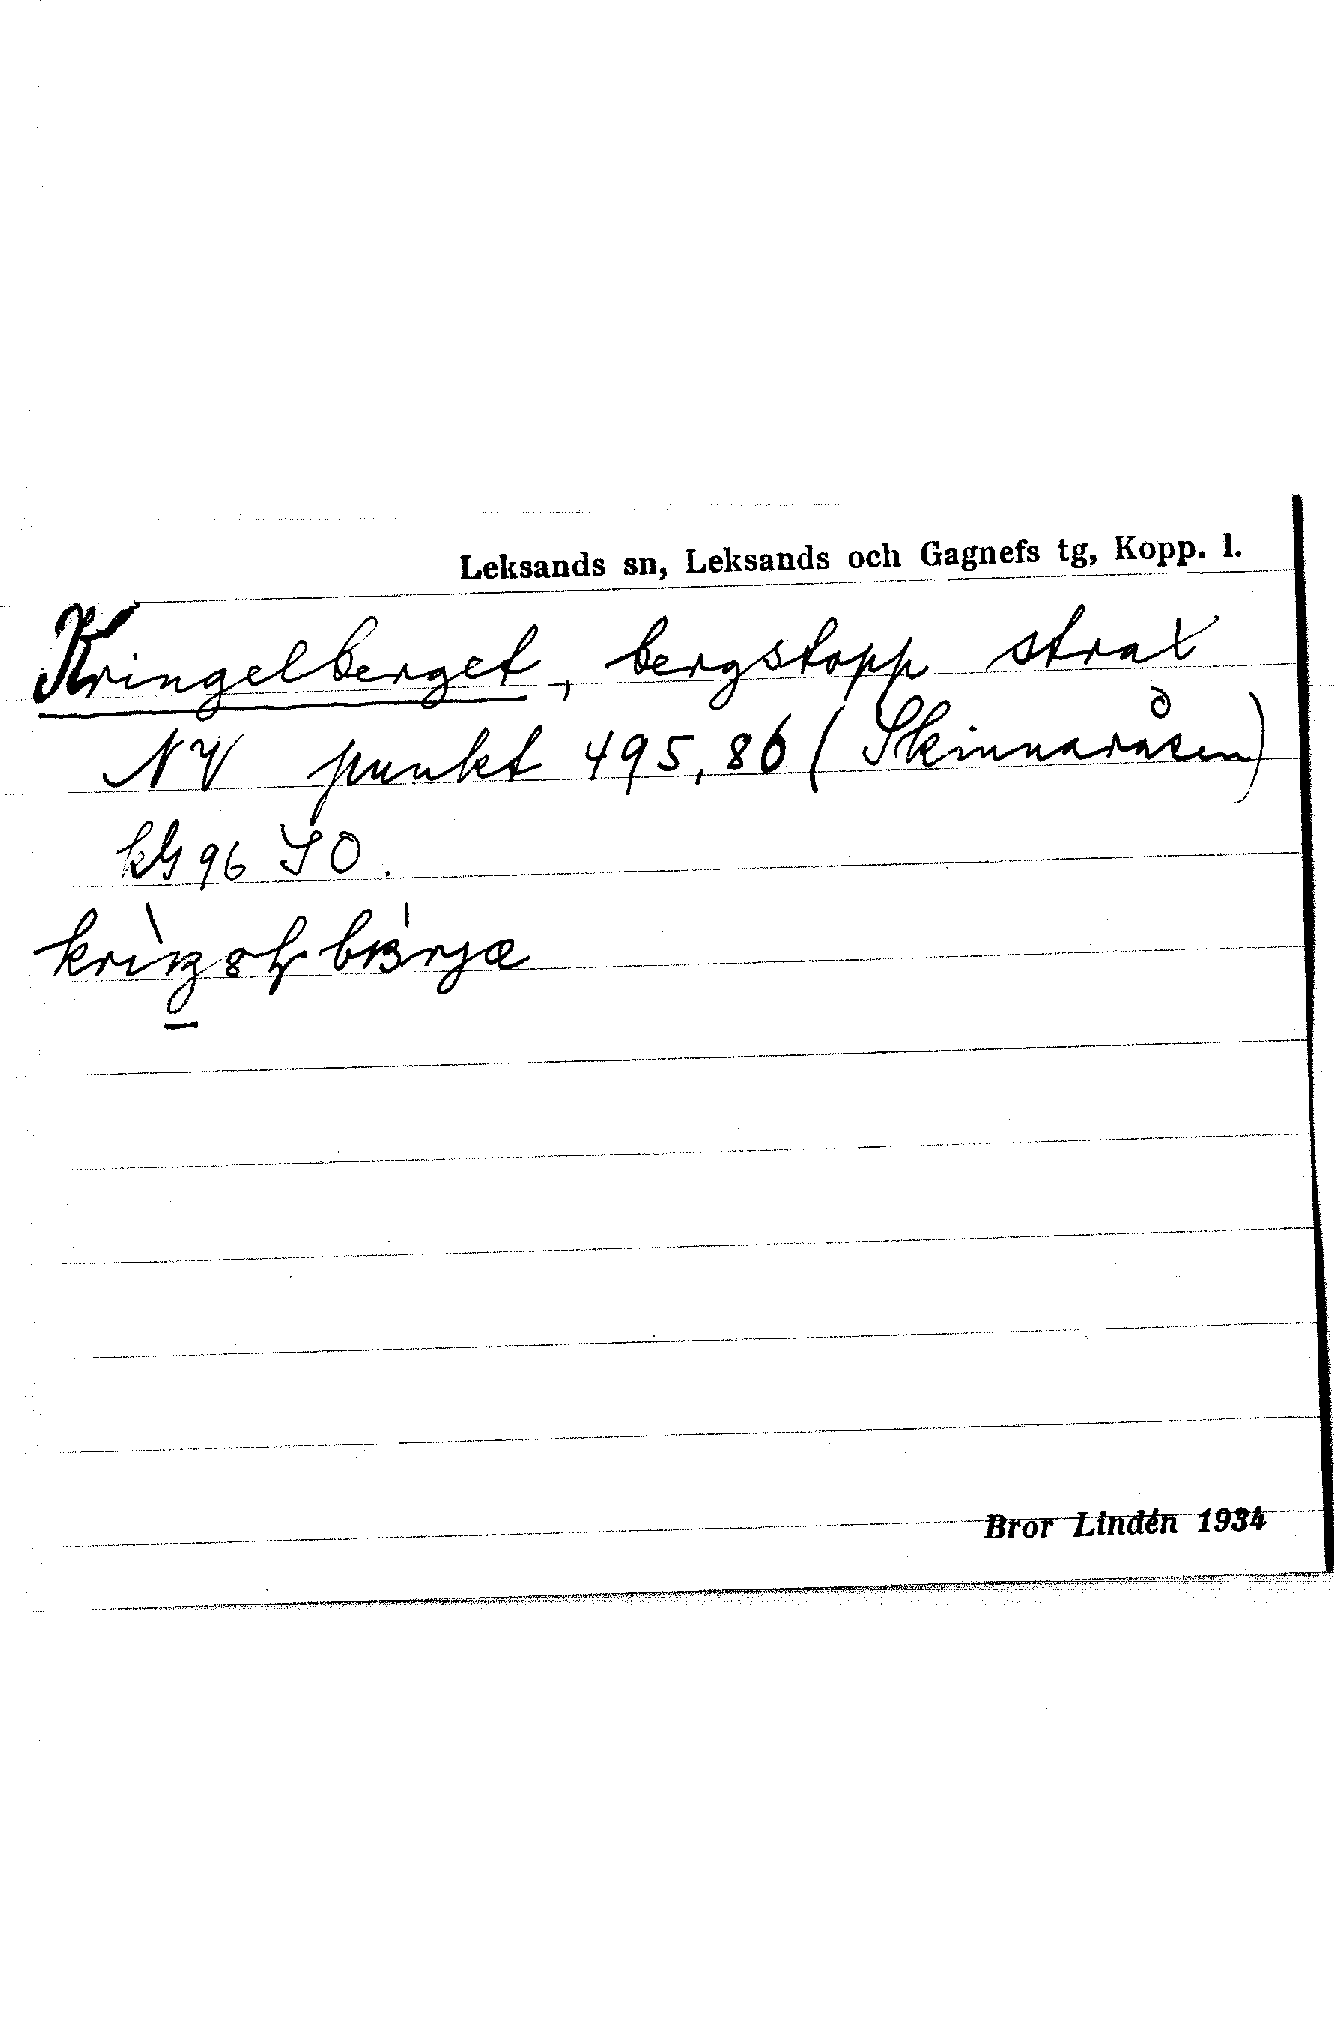 Leksands sn, Leksands och Gagnefs tg, Kopp. l.
Kringelberget, bergstopp strax
NV punkt 495,86 (Skinnaråsen)
kbl 96 SO.
Bror Lindén 1934